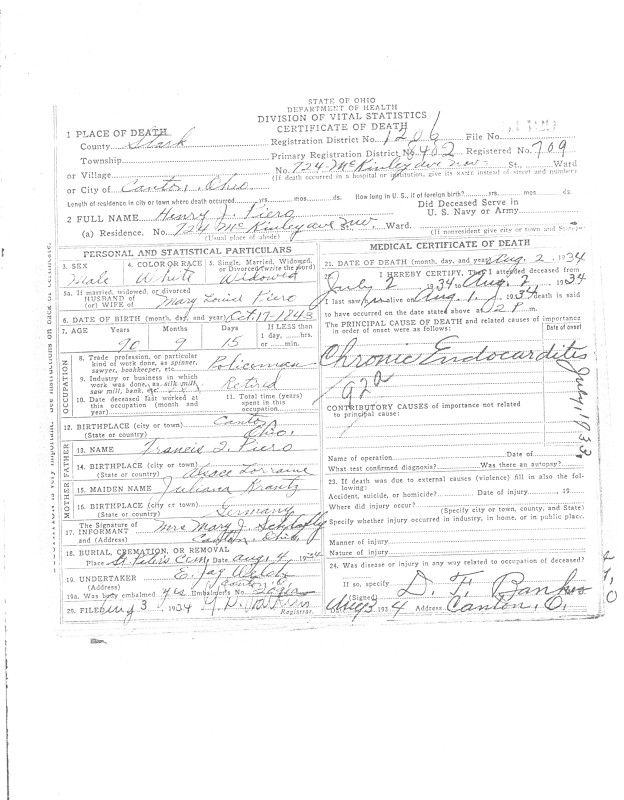 STATE OF OHIO
DEPARTMENT OF HEALTH
DIVISION OF VITAL STATISTICS
CERTIFICATE OF DEATH
1 PLACE OF DEATH
County Stark
Registration District No. 1206 File No.
Township
Primary Registration District No. 8402 Registered No. 709
or Village
No. 724 McKinley ave nw St., Ward
(If death occurred in a hospital or institution, give its NAME instead of street and number)
or City of Canton, Ohio
Length of residence in city or town where death occurred yrs. mos. ds. How long in U. S., if of foreign birth? yrs. mos. ds.
2 FULL NAME Henry J. Piero
Did Deceased Serve in
U. S. Navy or Army
(a) Residence. No. 724 McKinley ave nw. Ward.
(Usual place of abode) (If nonresident give city or town and State)
PERSONAL AND STATISTICAL PARTICULARS
3. SEX Male
4. COLOR OR RACE White
5. Single, Married, Widowed, or Divorced (write the word) Widowed
5a. If married, widowed, or divorced
HUSBAND of
(or) WIFE of Mary Louise Piero
6. DATE OF BIRTH (month, day, and year) Oct-17-1843
7. AGE Years Months Days If LESS than
1 day, ......hrs.
or ......min.
90 9 15
OCCUPATION
8. Trade, profession, or particular
kind of work done, as spinner,
sawyer, bookkeeper, etc. Policeman
9. Industry or business in which
work was done, as silk mill,
saw mill, bank, etc. Retired
10. Date deceased last worked at
this occupation (month and
year)
11. Total time (years)
spent in this
occupation
12. BIRTHPLACE (city or town) Canton
(State or country) Ohio.
FATHER
13. NAME Francis J. Piero
14. BIRTHPLACE (city or town)
(State or country) Alsace Lorraine
MOTHER
15. MAIDEN NAME Juliana Krantz
16. BIRTHPLACE (city or town)
(State or country) Germany
17. The Signature of
INFORMANT Mrs Mary J. Schlafly
(Address) Canton, Ohio
18. BURIAL, CREMATION, OR REMOVAL
Place St. Peters Cem Date Aug. 4, 1934
19. UNDERTAKER E. Jay
(Address) Canton, O
19a. Was body embalmed yes Embalmer's No.
20. FILED Aug 3 1934
Registrar.
MEDICAL CERTIFICATE OF DEATH
21. DATE OF DEATH (month, day, and year) Aug. 2, 1934
22. I HEREBY CERTIFY, That I attended deceased from
July 2 1934 to Aug. 2, 1934
I last saw him alive on Aug. 1, 1934 death is said
to have occurred on the date stated above at 2 P m.
The PRINCIPAL CAUSE OF DEATH and related causes of importance
in order of onset were as follows:
Date of onset
Chronic Endocarditis
July, 1933
92a
CONTRIBUTORY CAUSES of importance not related
to principal cause:
Name of operation Date of
What test confirmed diagnosis? Was there an autopsy?
23. If death was due to external causes (violence) fill in also the following:
Accident, suicide, or homicide? Date of injury , 19
Where did injury occur?
(Specify city or town, county, and State)
Specify whether injury occurred in industry, in home, or in public place.
Manner of injury
Nature of injury
24. Was disease or injury in any way related to occupation of deceased?
If so, specify
(Signed) D. F. Banks
Date Aug 3 1934 Address Canton, O.